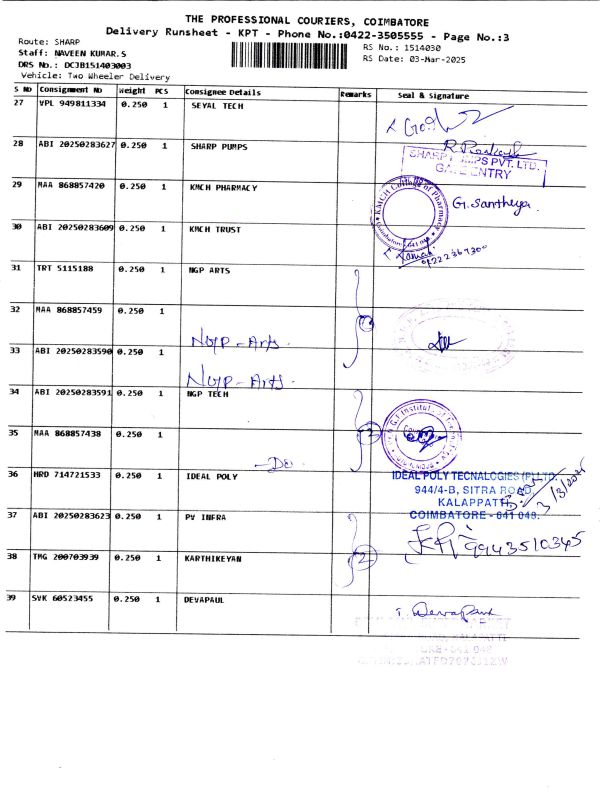 THE PROFESSIONAL COURIERS, COIMBATORE
Delivery Runsheet - KPT - Phone No.:0422-3505555 - Page No.:3
Route: SHARP
RS No.: 1514030
Staff: NAVEEN KUMAR.S
RS Date: 03-Mar-2025
DRS No.: DCJB151403003
Vehicle: Two Wheeler Delivery
S No Consignment No Weight PCS Consignee Details Remarks Seal & Signature
27 VPL 949811334 0.250 1 SEYAL TECH
28 ABI 20250283627 0.250 1 SHARP PUMPS
SHARP PUMPS PVT. LTD.
GATE ENTRY
29 MAA 868857420 0.250 1 KMCH PHARMACY
KMCH College of Pharmacy
G. Santhiya.
30 ABI 20250283609 0.250 1 KMCH TRUST
31 TRT 5115188 0.250 1 NGP ARTS
32 MAA 868857459 0.250 1
NGP - Arts.
33 ABI 20250283590 0.250 1
NGP - Arts.
34 ABI 20250283591 0.250 1 NGP TECH
35 MAA 868857438 0.250 1
- Do
36 HRD 714721533 0.250 1 IDEAL POLY
IDEAL POLY TECNALOGIES (P) LTD.
944/4-B, SITRA ROAD,
KALAPPATTI,
COIMBATORE - 641 048.
3/3/2025
37 ABI 20250283623 0.250 1 PV INFRA
9943510345
2
38 TMG 200703939 0.250 1 KARTHIKEYAN
39 SVK 60523455 0.250 1 DEVAPAUL
T. Devapaul